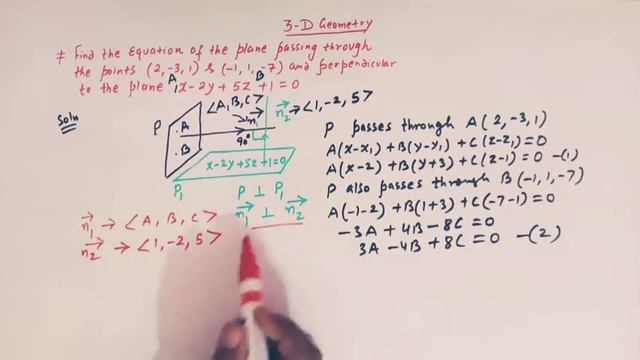 3-D Geometry
# Find the Equation of the plane passing through
the points (2, -3, 1) & (-1, 1, -7) and perpendicular
A B
to the plane x-2y+5z+1=0
Soln
P
.A
.B
<A, B, C>
n₁
90°
n₂ → <1, -2, 5>
x-2y+5z+1=0
P₁
P ⊥ P₁
n₁ ⊥ n₂
n₁ → <A, B, C>
n₂ → <1, -2, 5>
P passes through A(2, -3, 1)
A(x-x₁)+B(y-y₁)+C(z-z₁)=0
A(x-2)+B(y+3)+C(z-1)=0 -(1)
P also passes through B(-1, 1, -7)
A(-1-2)+B(1+3)+C(-7-1)=0
-3A+4B-8C=0
3A-4B+8C=0 -(2)